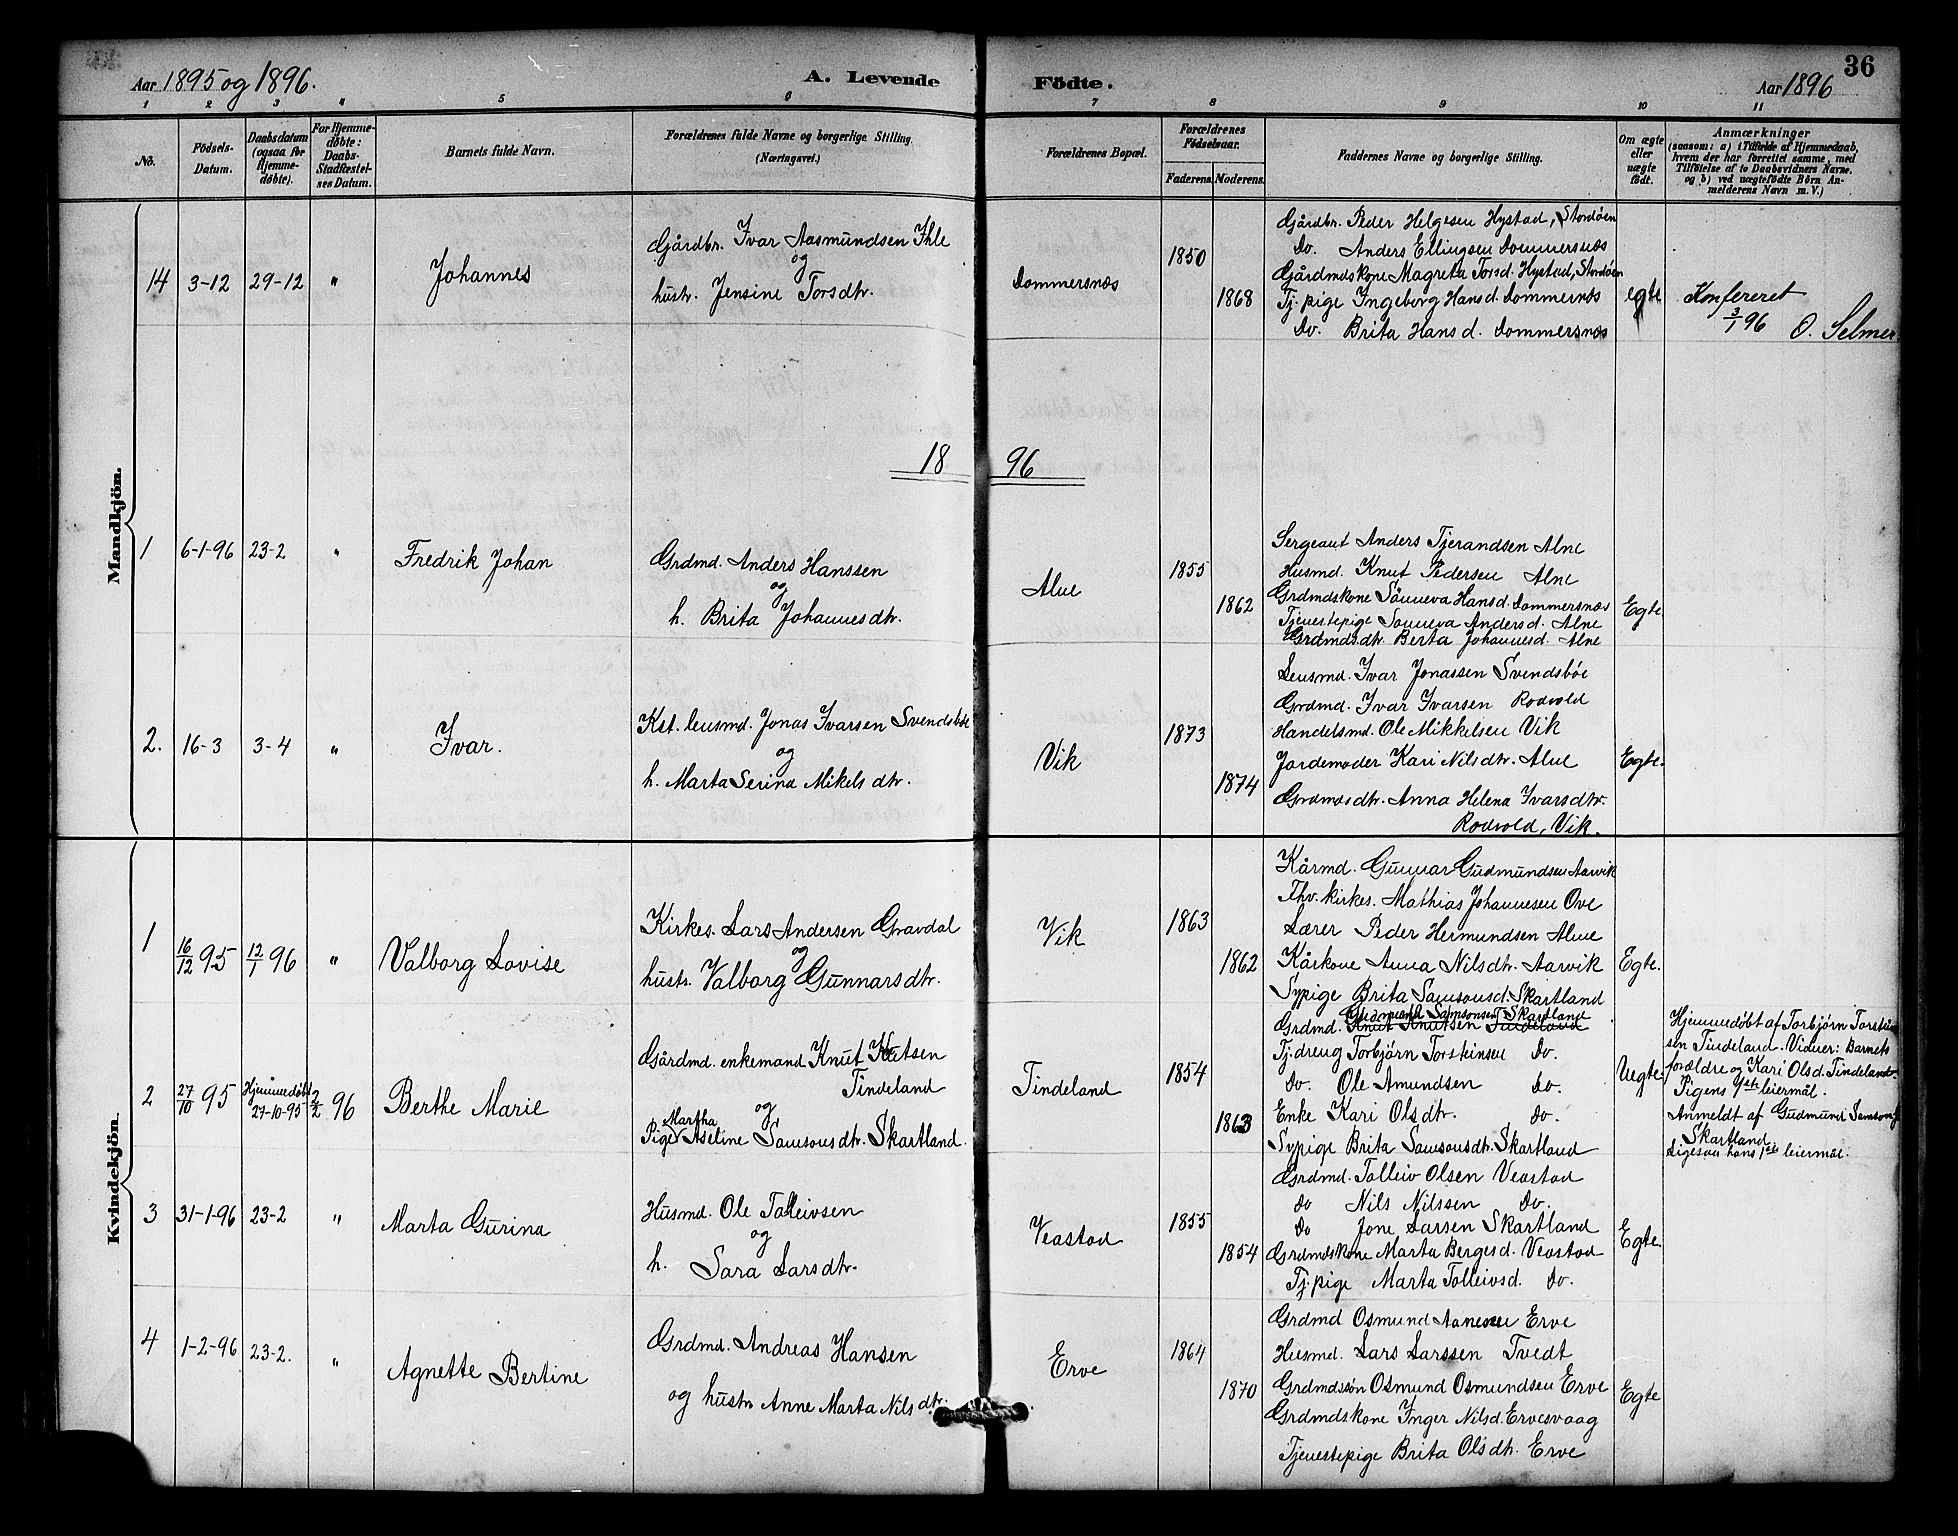 Aar 1895 og 1896.
A. Levende
Födte.
Aar 1896
36
1 2 3 4 5 6 7 8 9 10 11
No.
Födsels-
Datum.
Daabsdatum
(ogsaa for
Hjemme-
døbte).
For Hjemme-
døbte:
Daabs-
Stadfæstel-
ses Datum.
Barnets fulde Navn.
Forældrenes fulde Navne og borgerlige Stilling.
(Næringsvei.)
Forældrenes Bopæl.
Forældrenes
Fødselsaar.
Faderens. Moderens.
Faddernes Navne og borgerlige Stilling.
Om ægte
eller
uægte
født.
Anmærkninger
(saasom: a) i Tilfælde af Hjemmedaab,
hvem der har forrettet samme, med
Tilføielse af to Daabsvidners Navne,
og b) ved uægtefödte Börn An-
melderens Navn m. V.)
Mandkjön.
14 3-12 29-12 "
Johannes
Gårdbr. Ivar Aasmundsen Ihle
og
hustr. Jensine Torsdtr.
Dommersnæs
1850
1868
Gårdbr. Peder Helgesen Hystad, Stordöen
Do. Anders Ellingsen Dommersnæs
Gårdmdskone Magreta Torsd. Hystad, Stordöen
Tj. pige Ingeborg Hansd. Dommernæs
Do. Brita Hansd. Dommersnæs
egte
Konfereret
3/1 96 O. Selmer.
18 96
1 6-1-96 23-2 "
Fredrik Johan
Grdmd. Anders Hanssen
og
h. Brita Johannesdtr.
Alne
1855
1862
Sergeant Anders Tjerandsen Alne
Husmd. Knut Pedersen Alne
Grdmdskone Sönneva Hansd. Dommersnæs
Tjenestepige Sonneva Andersd. Alne
Grdmdsdtr. Berta Johannesd. Alne
Egte
2. 16-3 3-4 "
Ivar.
Kst. lensmd. Jonas Ivarsen Svendsböe
og
h. Marta Serina Mikelsdtr.
Vik
1873
1874
Lensmd. Ivar Jonassen Svendsböe
Grdmd. Ivar Ivarsen Rodvold
Handelsmd. Ole Mikkelsen Vik
Jordemoder Kari Nilsdtr. Alne
Grdmdsdtr. Anna Helena Ivarsdtr.
Rodvold, Vik.
Egte.
Kvindekjön.
1 16/12 95 12/1 96 "
Valborg Lovise
Kirkes. Lars Andersen Gravdal
og
hustr. Valborg Gunnarsdtr.
Vik
1863
1862
Kårmd. Gunnar Gudmundsen Aarvik
Fhv. kirkes. Mathias Johannesen Ove
Lærer Peder Hermundsen Alne
Kårkone Anna Nilsdtr. Aarvik
Sypige Brita Samsonsd. Skartland
Egte.
2 27/10 95 Hjemmedøbt
27-10-95 2/2 96
Berthe Marie
Gårdmd. enkemand Knut Knutsen
Tindeland
og
Martha
Pige Aseline Samsonsdtr. Skartland.
Tindeland
1854
1863
Gudmund Samsonsen Skartland
Grdmd. Knut Knutsen Tindeland
Tj. dreng Torbjörn Torsteinsen Do.
Do. Ole Amundsen Do.
Enke Kari Olsdtr. Do.
Sypige Brita Samsonsdtr. Skartland
Uegte.
Hjemmedøbt af Torbjörn Torstein-
sen Tindeland. Vidner: Barnets
forældre og Kari Olsd. Tindeland.
Pigens 1ste leiermål.
Anmeldt af Gudmund Samsons.
Skartland.
Ligesaa hans 1ste leiermål.
3 31-1-96 23-2 "
Marta Gurina
Husmd. Ole Tolleivsen
og
h. Sara Larsdtr.
Veastad
1855
1854
Grdmd. Tolleiv Olsen Veastad
Do Nils Nilssen Do.
Do Jone Larsen Skartland
Grdmdskone Marta Bergesd. Veastad
Tj. pige Marta Tolleivsd. Do.
Egte.
4 1-2-96 23-2. "
Agnette Bertine
Grdmd. Andreas Hansen
og hustr Anne Marta Nilsdtr.
Erve
1864
1870
Grdmd Osmund Aanesen Erve
Husmd. Lars Larssen Tvedt
Grdmdssön Osmund Osmundsen Erve
Grdmdskone Inger Nilsd. Ervesvaag
Tjenestepige Brita Olsdtr. Erve
Egte